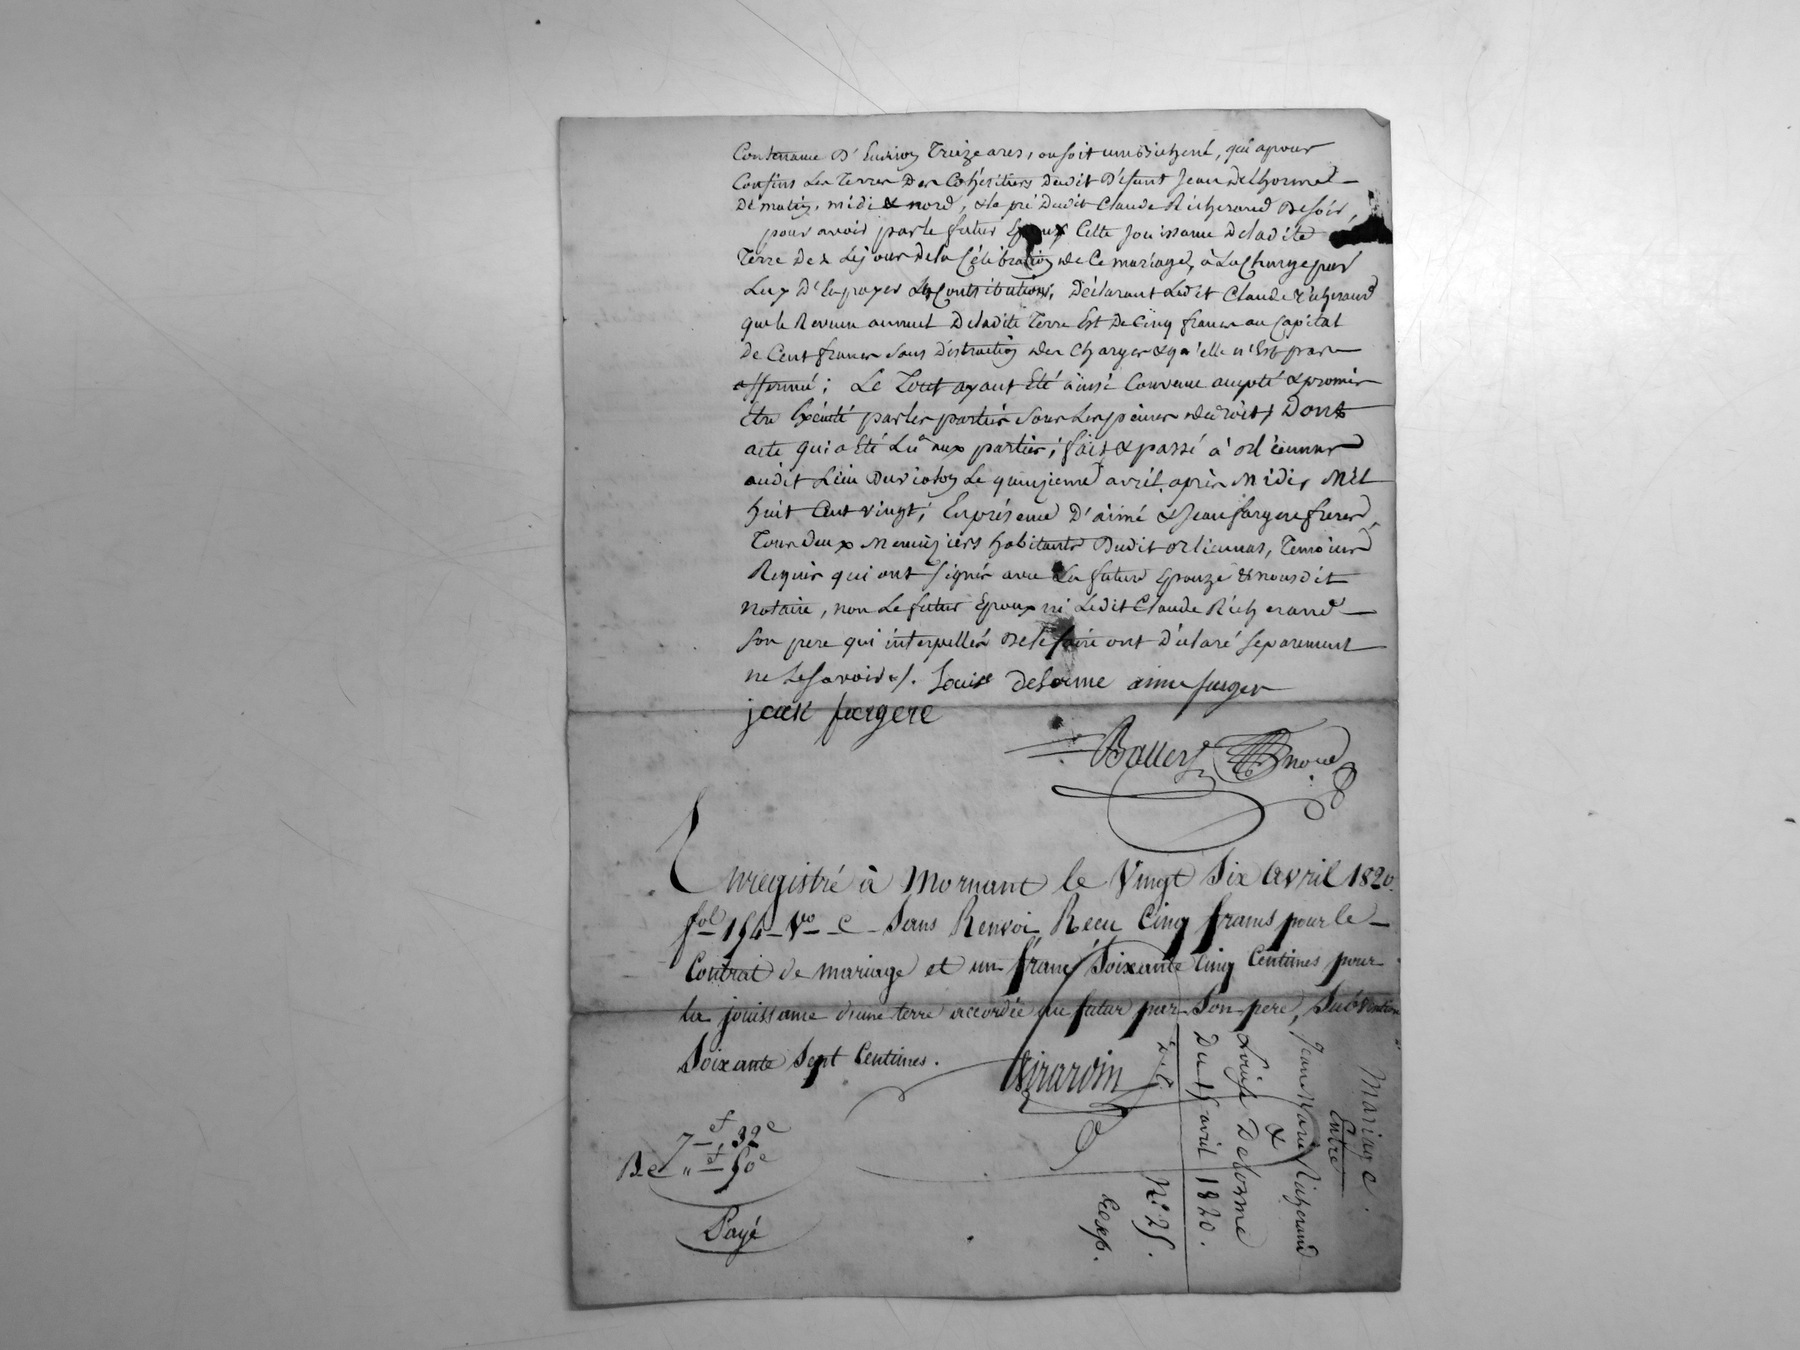 Contenance D'Environ Treize ares, ou soit une bichené, qui a pour
Confins Les Terres Des Cohéritiers dudit Défunt Jean Delhorme
De matin, midi & nord, & le pré Dudit Claude Richerand De soir,
pour avoir par le futur Epoux Cette Jouissance De ladite
Terre Dès Le jour De la Célébration de Ce mariage, à La Charge par
Luy D'En payer Les Contributions, Déclarant Ledit Claude Richerand
que le Revenu annuel De ladite Terre Est De Cinq francs au Capital
de Cent francs sans Distraction des Charges & qu'elle n'Est pas
affermé; Le Tout ayant Eté ainsi Convenu accepté & promis
Etre Exécuté par les parties sous Les peines de Droit, Dont
acte qui a Eté Lu aux parties; fait & passé à orliennas
audit Lieu Du violon Le quinzieme avril après Midi, Mil
huit Cent vingt, En présence D'aimé & Jean fargere freres,
Tous deux Menuiziers habitants Dudit orliennas, Temoins
Requis qui ont signés avec La future Epouze & nousdit
Notaire, non Le futur Epoux ni Ledit Claude Richerand
son pere qui interpellés De le faire ont Déclaré séparement
ne Le savoir ./. Louise delorme aime farger
jean fargere
Enregistré à Mornant le Vingt Six avril 1820.
fol 154 Vo C Sans Renvoi, Recu Cinq francs pour le
Contrat de mariage et un franc Soixante Cinq Centimes pour
la jouissance d'une terre accordée au futur par Son pere, Subvention
Soixante Sept Centimes.
Girardin
7 f, 32 c
" f 50 c
Payé
Mariage
Entre
Jean Marie Richerand
&
Louise Delorme
Du 15 avril 1820.
N° 25.
Exp.